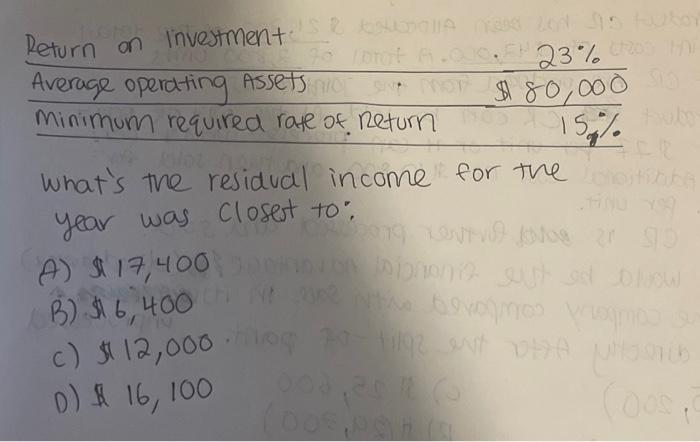 Return on investment 23%
Average operating Assets $ 80,000
minimum required rate of return 15%
what's the residual income for the
year was closest to:
A) $ 17,400
B) $ 6,400
c) $ 12,000
D) $ 16,100